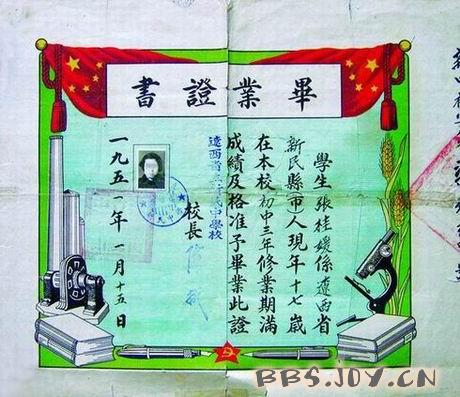 畢業證書
學生張桂媛係遼西省
新民縣(市)人現年十七歲
在本校初中三年修業期滿
成績及格准予畢業此證
遼西省民中學校
校長
一九五一年一月十五日
BBS.JOY.CN